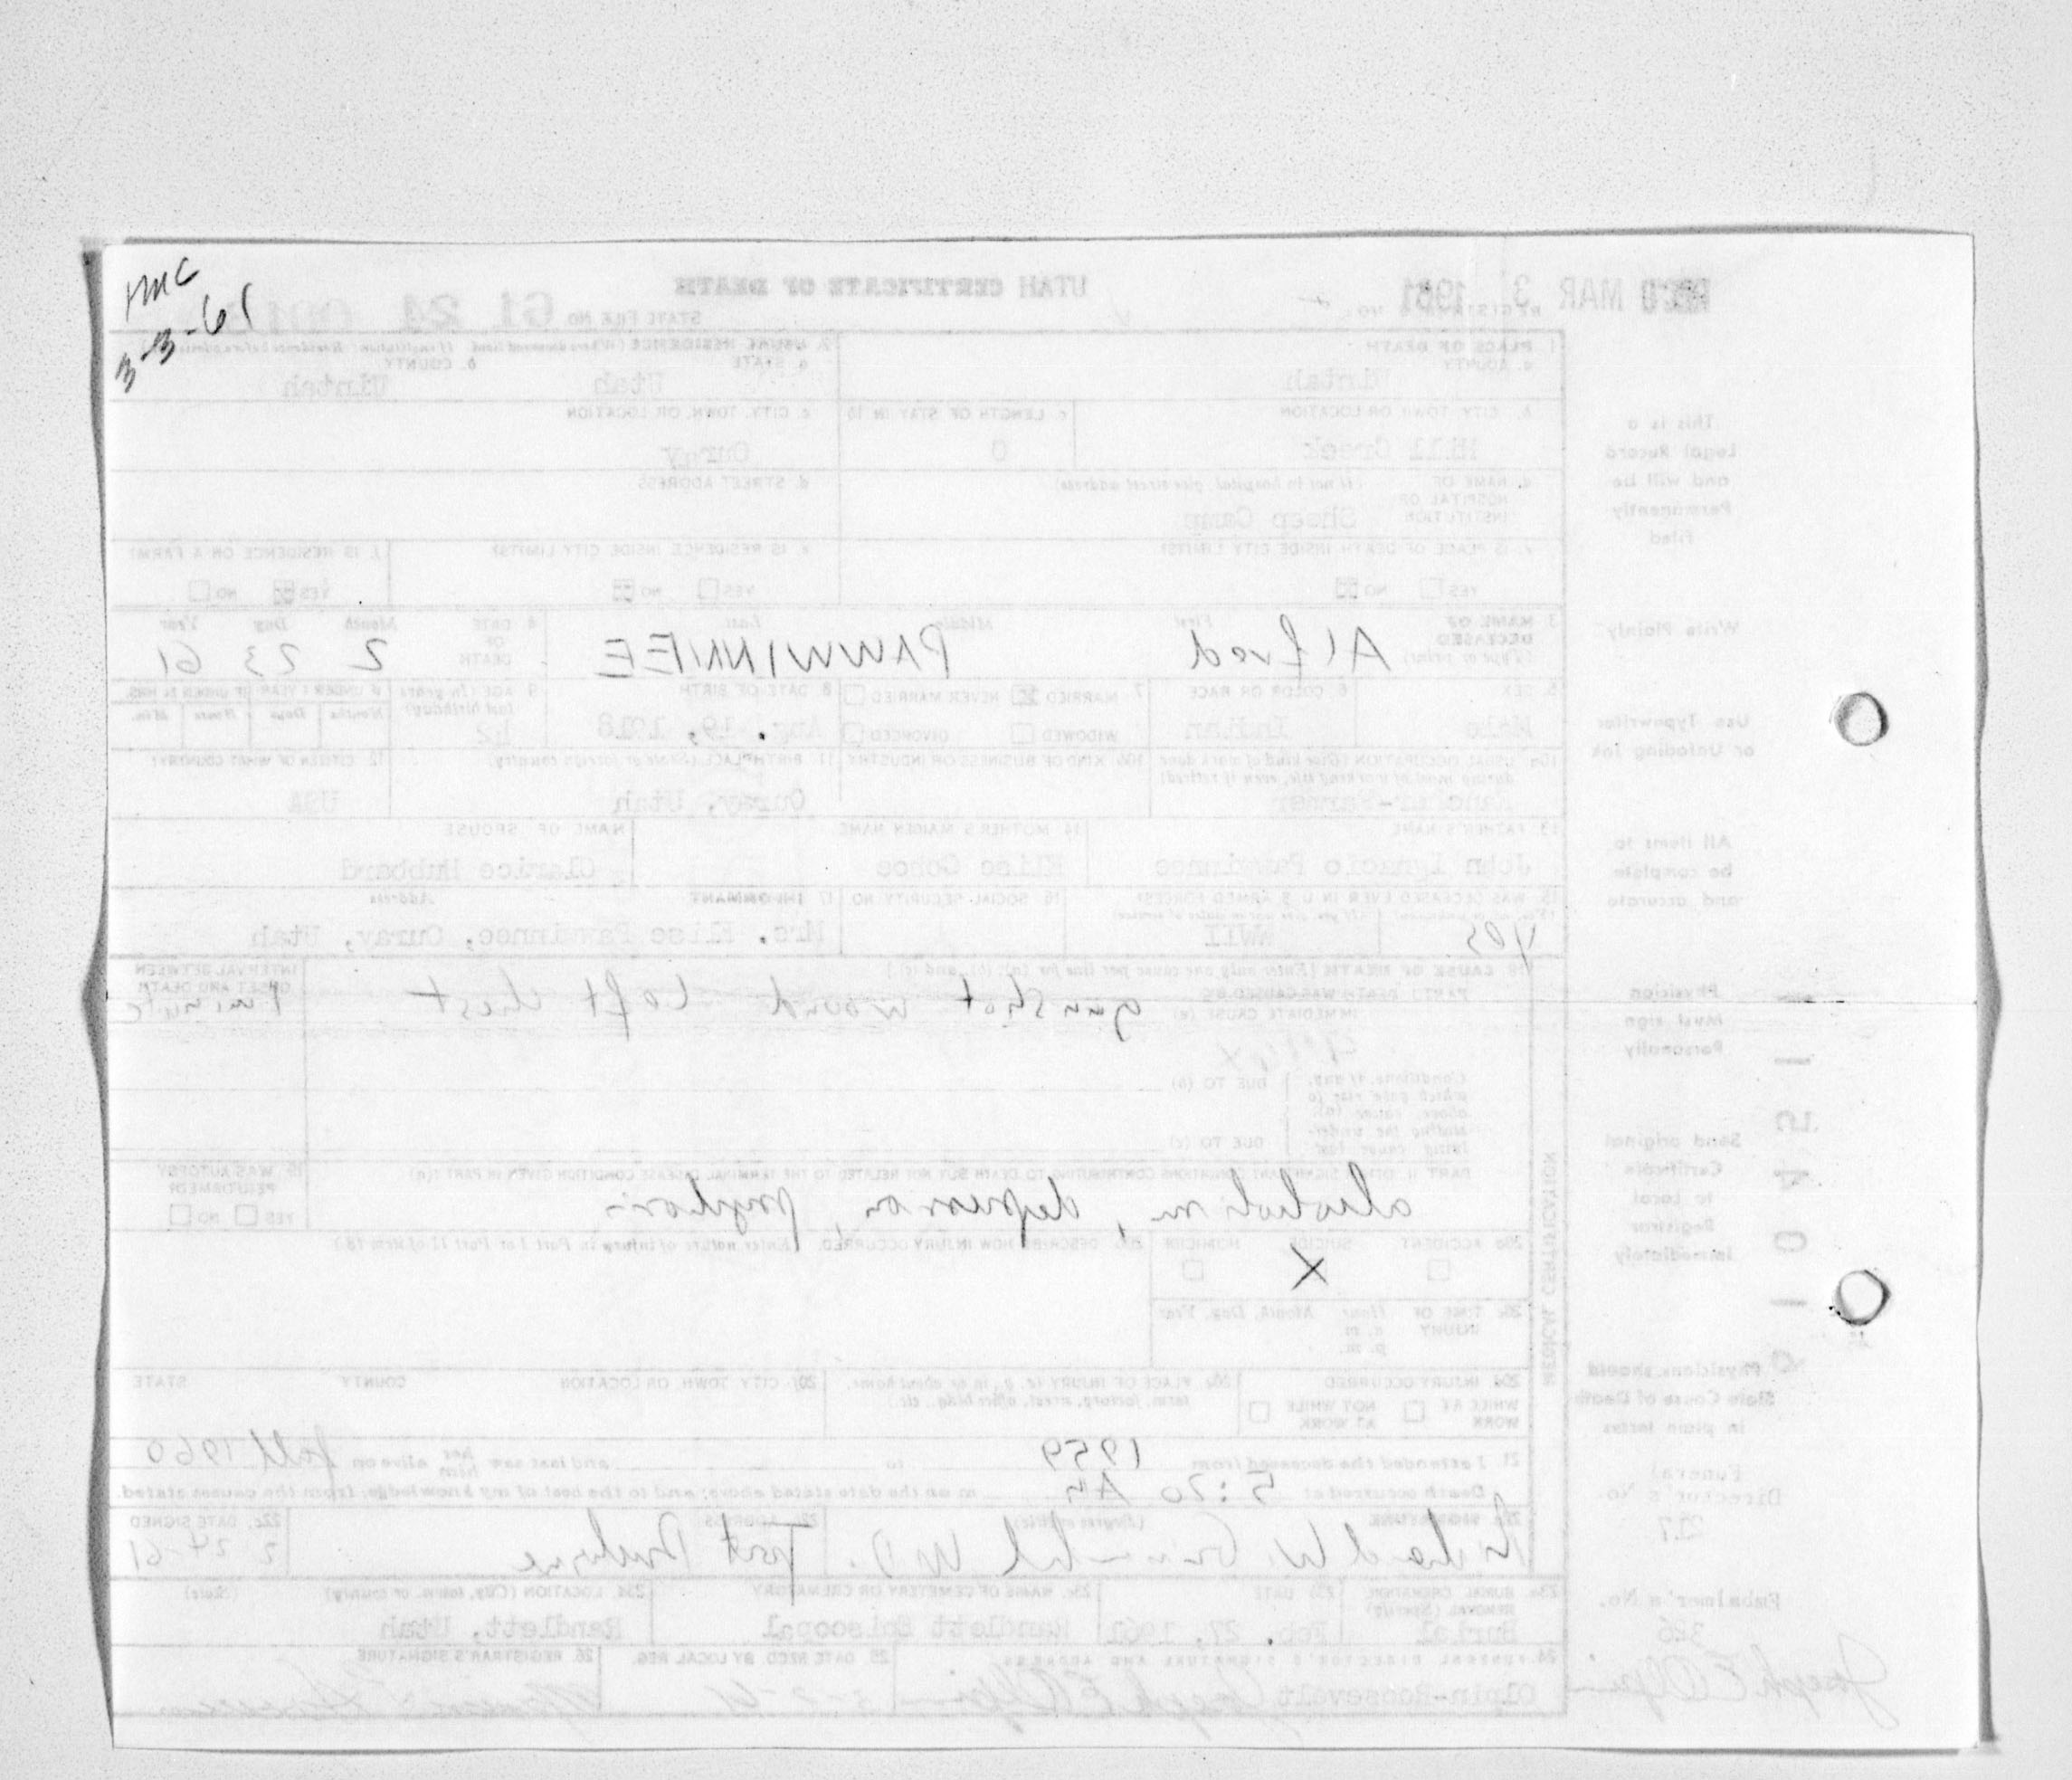 HMC
3-3-61
REC'D MAR 3 1961
UTAH CERTIFICATE OF DEATH
STATE FILE NO. 61 24
REGISTRAR'S NO.
This is a Legal Record and will be Permanently Filed
1. PLACE OF DEATH
a. COUNTY
Uintah
2. USUAL RESIDENCE (Where deceased lived. If institution: Residence before admission)
a. STATE Utah
b. COUNTY Uintah
b. CITY, TOWN, OR LOCATION
Hill Creek
c. LENGTH OF STAY IN 1b
0
c. CITY, TOWN, OR LOCATION
Ouray
d. NAME OF HOSPITAL OR INSTITUTION (If not in hospital, give street address)
Sheep Camp
d. STREET ADDRESS
e. IS PLACE OF DEATH INSIDE CITY LIMITS?
YES NO
e. IS RESIDENCE INSIDE CITY LIMITS?
YES NO
f. IS RESIDENCE ON A FARM?
YES NO
Write Plainly
3. NAME OF DECEASED (Type or print)
First Middle Last
Alfred PAWWINNEE
4. DATE OF DEATH
Month Day Year
2 23 61
Use Typewriter or Unfading Ink
5. SEX
Male
6. COLOR OR RACE
Indian
7. MARRIED NEVER MARRIED
WIDOWED DIVORCED
8. DATE OF BIRTH
19, 1918
9. AGE (In years last birthday)
42
IF UNDER 1 YEAR IF UNDER 24 HRS.
Months Days Hours Min.
10a. USUAL OCCUPATION (Give kind of work done during most of working life, even if retired)
Rancher-Farmer
10b. KIND OF BUSINESS OR INDUSTRY
11. BIRTHPLACE (State or foreign country)
Ouray, Utah
12. CITIZEN OF WHAT COUNTRY?
USA
All items to be complete and accurate
13. FATHER'S NAME
John Ignacio Pawinnee
14. MOTHER'S MAIDEN NAME
Elise Cohoe
NAME OF SPOUSE
Clarice Hubbard
15. WAS DECEASED EVER IN U. S. ARMED FORCES?
yes WWII
16. SOCIAL SECURITY NO.
17. INFORMANT Address
Mrs. Elise Pawinnee, Ouray, Utah
Physician Must sign Personally
18. CAUSE OF DEATH [Enter only one cause per line for (a), (b), and (c).]
PART I. DEATH WAS CAUSED BY:
IMMEDIATE CAUSE (a)
gunshot wound left chest
INTERVAL BETWEEN ONSET AND DEATH
minute
Conditions, if any, which gave rise to above cause (a), stating the underlying cause last.
DUE TO (b)
DUE TO (c)
Send original Certificate to Local Registrar Immediately
MEDICAL CERTIFICATION
PART II. OTHER SIGNIFICANT CONDITIONS CONTRIBUTING TO DEATH BUT NOT RELATED TO THE TERMINAL DISEASE CONDITION GIVEN IN PART I(a)
alcoholism, depression, psychosis
19. WAS AUTOPSY PERFORMED?
YES NO
20a. ACCIDENT SUICIDE HOMICIDE
X
20b. DESCRIBE HOW INJURY OCCURRED. (Enter nature of injury in Part I or Part II of item 18.)
20c. TIME OF INJURY Hour Month, Day, Year
a. m.
p. m.
Physicians should State Cause of Death in plain terms
20d. INJURY OCCURRED
WHILE AT WORK NOT WHILE AT WORK
20e. PLACE OF INJURY (e. g., in or about home, farm, factory, street, office bldg., etc.)
20f. CITY, TOWN, OR LOCATION COUNTY STATE
21. I attended the deceased from 1959 to and last saw her him alive on fall 1960
Death occurred at 5:20 AM m on the date stated above; and to the best of my knowledge, from the causes stated.
Funeral Director's No.
217
22a. SIGNATURE (Degree or title)
22b. ADDRESS
Fort Duchesne
22c. DATE SIGNED
2 24-61
Embalmer's No.
326
23a. BURIAL, CREMATION, REMOVAL (Specify)
Burial
23b. DATE
Feb. 27, 1961
23c. NAME OF CEMETERY OR CREMATORY
Randlett Episcopal
23d. LOCATION (City, town, or county) (State)
Randlett, Utah
24. FUNERAL DIRECTOR'S SIGNATURE AND ADDRESS
Olpin-Roosevelt Joseph E Olpin
25. DATE REC'D BY LOCAL REG.
26. REGISTRAR'S SIGNATURE
Joseph E Olpin